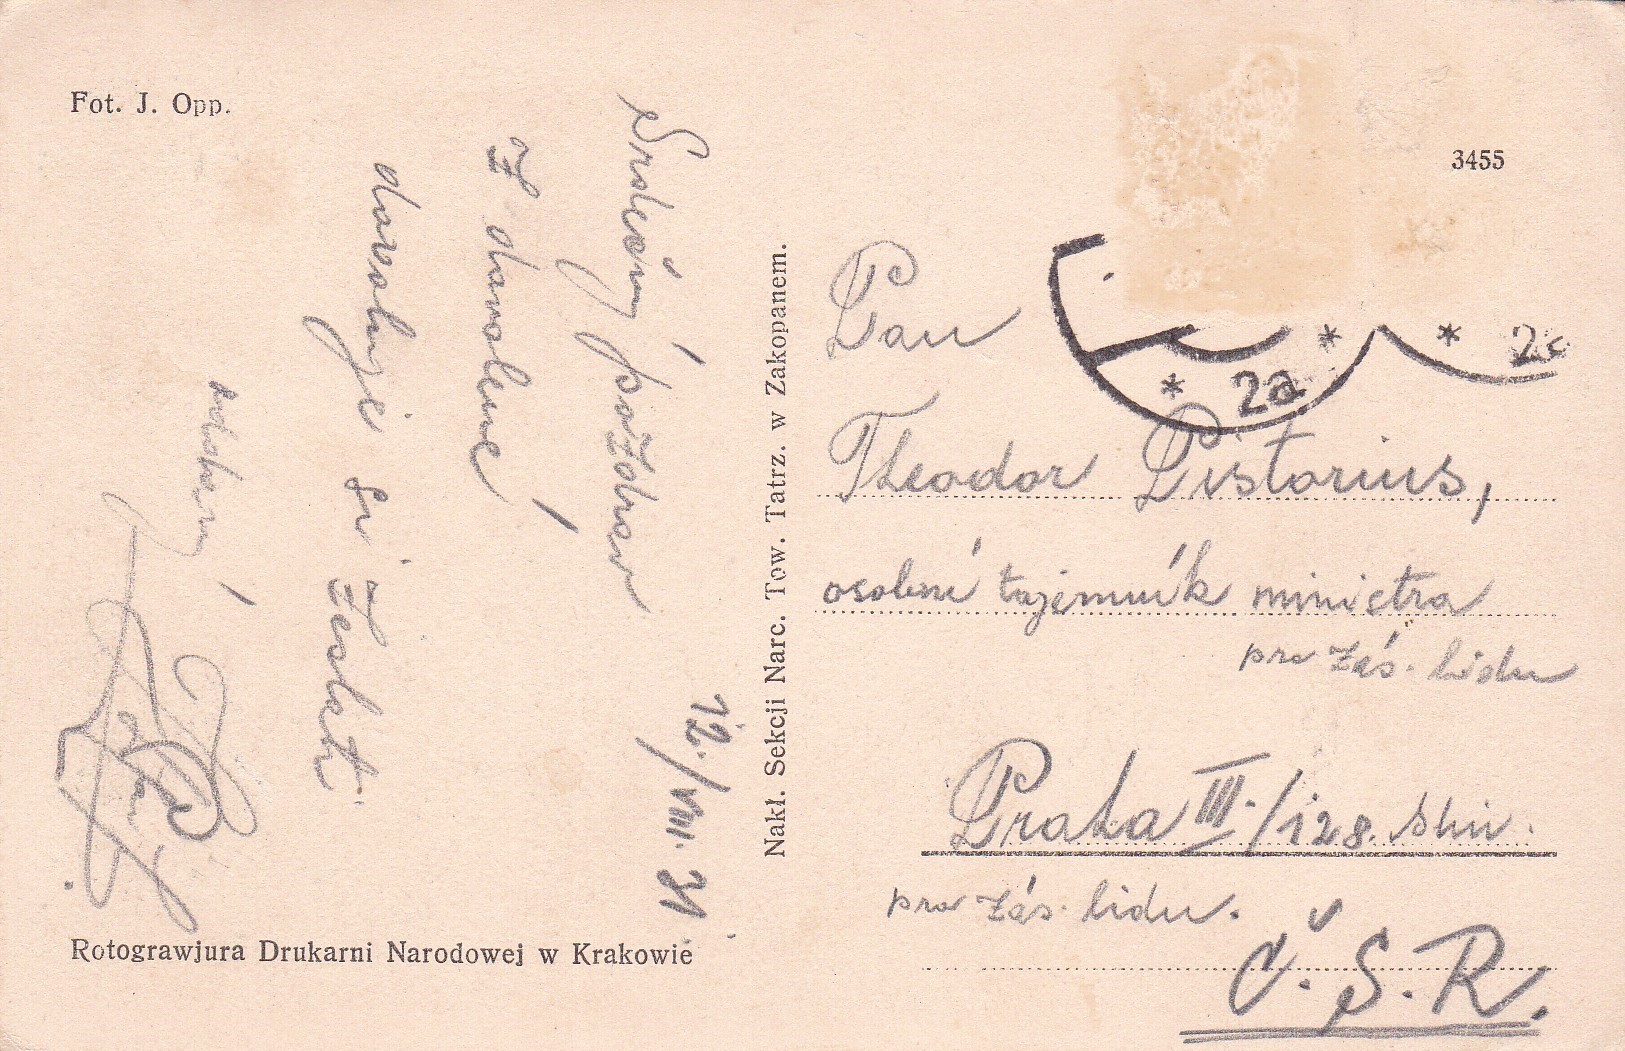 Fot. J. Opp.
3455
Srdečný pozdrav
z dovolené
dovoluje si zaslati
oddaný
12./VIII. 31
Nakł. Sekcji Narc. Tow. Tatrz. w Zakopanem.
* 2a *
*
Pan
Theodor Pistorius,
osobní tajemník ministra
pro zás. lidu
Praha III./128. Min.
pro zás. lidu.
Č.S.R.
Rotograwjura Drukarni Narodowej w Krakowie